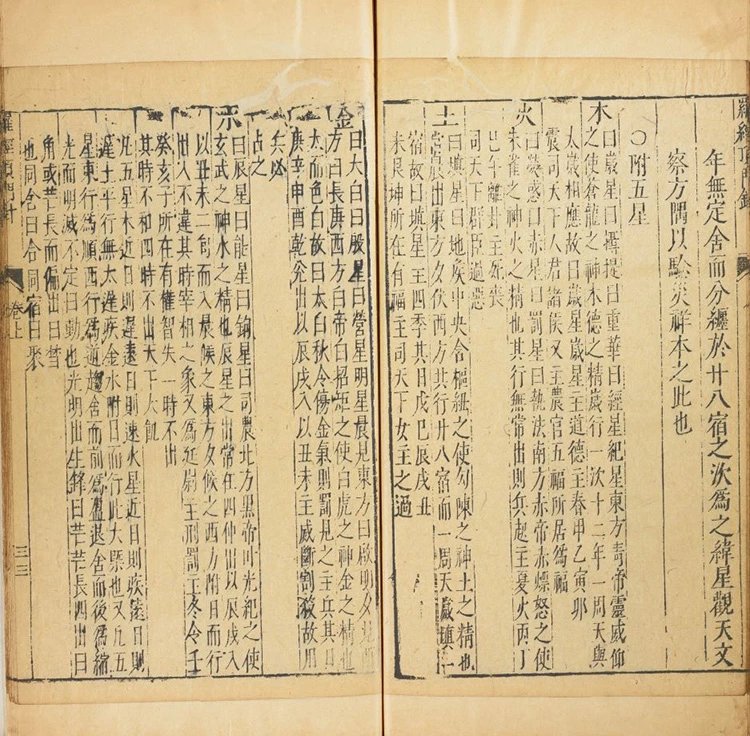 羅經頂門針
年無定舍而分纏於廿八宿之次為之緯星觀天文
察方隅以驗災祥本之此也
○附五星
木
曰歲星曰攝提曰重華曰經星紀星東方青帝靈威仰
之使蒼龍之神木德之精歲行一次十二年一周天與
太歲相應故曰歲星歲星主道德主春甲乙寅卯
震司天下人君諸侯又主農官五福所居爲福
火
曰熒惑曰赤星曰罰星曰執法南方赤帝赤熛怒之使
朱雀之神火之精也其行無常出則兵起主夏火丙丁
巳午離卦主死喪
司天下群臣過惡
土
曰填星曰地矦中央含樞紐之使勾陳之神土之精也
常晨出東方夕伏西方共行廿八宿而一周天歲填一
宿故曰填星主四季其日戊己辰戌丑
未艮坤所在有福主司天下女主之過
金
曰大白曰殷星曰營星明星晨見東方曰啟明夕見西
方曰長庚西方白帝白招矩之使白虎之神金之精也
太而色白故曰太白秋令傷金氣則罰見之主兵其日
庚辛申酉乾兌出以辰戌入以丑未主威斷割殺故用
兵必
占之
水
曰辰星曰能星曰鉤星曰司農北方黑帝叶光紀之使
玄武之神水之精也辰星之出常在四仲出以辰戌入
以丑未二旬而入晨候之東方夕候之西方附日而行
出入不違其時宰相之象又爲延尉主刑罰主冬令壬
癸亥子所在有權智失一時不出
其時不和四時不出天下大飢
凡五星木近日則遲遠日則速火星近日則疾遠日則
遲土平行無太遲疾金水附日而行此大槩也又凡五
星東行爲順西行爲逆趨舍而前爲盈退舍而後爲縮
光而明滅不定曰動也光明出生鋒曰芒芒長四出曰
角或芒長而偏出曰彗
也同舍曰合同宿曰聚
羅經頂門針
卷上
三三